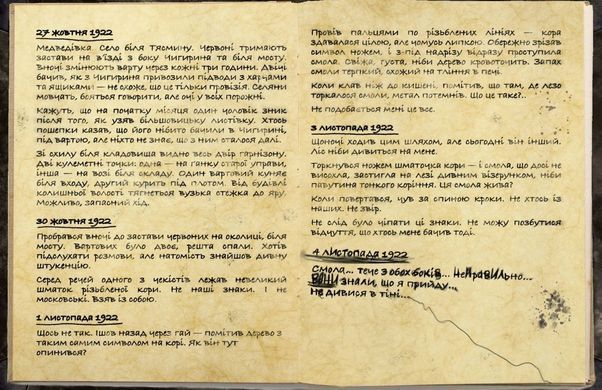 27 жовтня 1922
Медведівка. Село біля Тясмину. Червоні тримають
застави на в'їзді з боку Чигирина та біля мосту.
Вночі змінюють варту через кожні три години. Двічі
бачив, як з Чигирина привозили підводи з харчами
та ящиками — не схоже, що це тільки провізія. Селяни
мовчать, бояться говорити, але очі у всіх порожні.
Кажуть, що на початку місяця один чоловік зник
після того, як узяв більшовицьку листівку. Хтось
пошепки казав, що його нібито бачили в Чигирині,
під вартою, але ніхто не знає, що з ним сталося далі.
Зі схилу біля кладовища видно весь двір гарнізону.
Дві кулеметні точки: одна — на ганку старої управи,
інша — на возі біля складу. Один вартовий куняє
біля входу, другий курить під плотом. Від будівлі
колишньої волості тягнеться вузька стежка до яру.
Можливо, запасний хід.
30 жовтня 1922
Пробрався вночі до застави червоних на околиці, біля
мосту. Вартових було двоє, решта спали. Хотів
підслухати розмови, але натомість знайшов дивну
штукенцію.
Серед речей одного з чекістів лежав невеликий
шматок різьбленої кори. Не наші знаки. І не
московські. Взяв із собою.
1 листопада 1922
Щось не так. Ішов назад через гай — помітив дерево з
таким самим символом на корі. Як він тут
опинився?
Провів пальцями по різьблених лініях — кора
здавалася цілою, але чомусь липкою. Обережно зрізав
символ ножем, і з-під надрізу відразу проступила
смола. Свіжа, густа, ніби дерево кровоточить. Запах
смоли терпкий, схожий на тління в печі.
Коли клав ніж до кишені, помітив, що там, де лезо
торкалося смоли, метал потемнів. Що це таке?..
Не подобається мені це все.
3 листопада 1922
Щоночі ходив цим шляхом, але сьогодні він інший.
Ліс ніби дивиться на мене.
Торкнувся ножем шматочка кори — і смола, що досі не
висохла, застигла на лезі дивним візерунком, ніби
павутина тонкого коріння. Ця смола жива?
Коли повертався, чув за спиною кроки. Не хтось із
наших. Не звір.
Не слід було чіпати ці знаки. Не можу позбутися
відчуття, що хтось мене бачив тоді.
4 листопада 1922
Смола... тече з обох боків... неправильно...
ВОНИ знали, що я прийду...
не дивися в тіні...